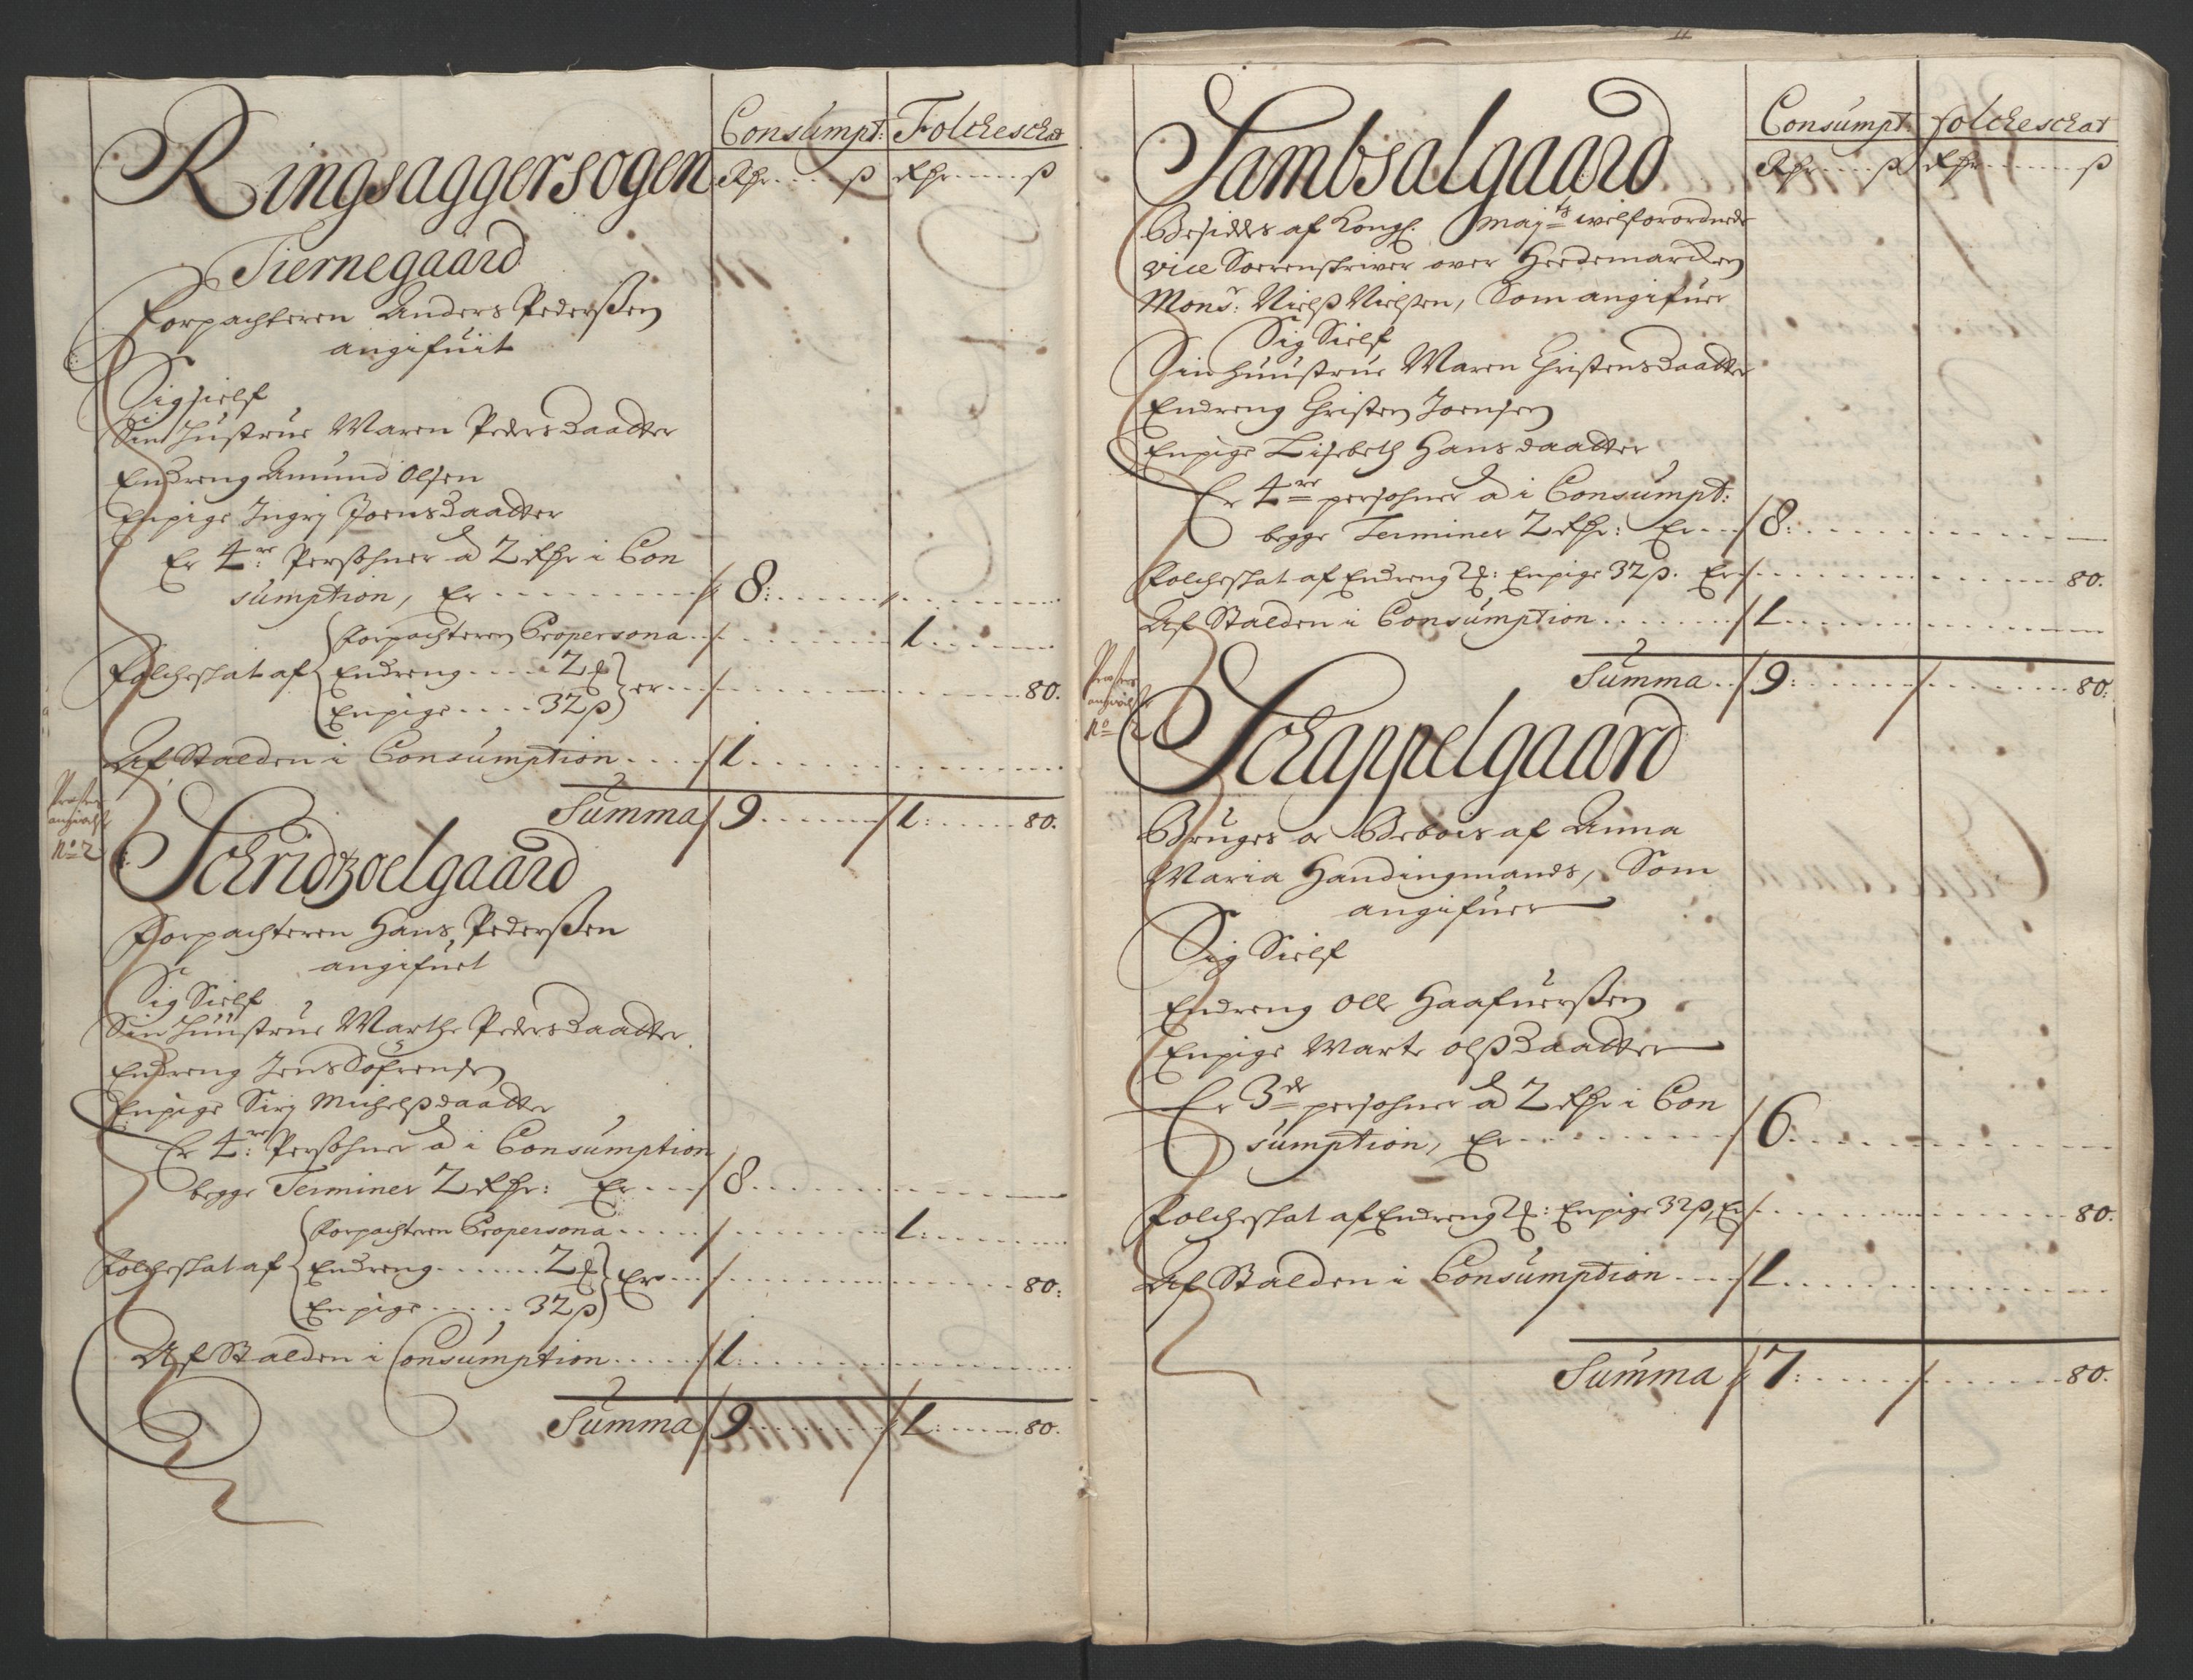 Consumpt: Folcheschat
Ringsaggersogen Rdr ß Rdr ß
Tiernegaard
Forpachteren Anders Pederßen
angifuit
Sig sielf
Sin Hustrue Maren Pedersdaatter
En dreng Amund Olsen
En pige Ingri Joensdaatter
Er 4re Persohner a 2 Rdr i Con
sumption, Er 8:
Folcheskat af
Forpachteren Propersona 1
En dreng 2 ℔
En pige 32 ß
er 80.
Af Stalden i Consumption 1
Summa 9 1: 80.
Præsten
angivelse
No 2
Schridtzoelgaard
Forpachteren Hans Pederßen
angifuet
Sig Sielf
Sin Huustrue Marthe Pedersdaatter
En dreng Jens Sofrensen
En pige Siri Michelßdaatter
Er 4re Persohner a i Consumption
begge Terminer 2 Rdr: Er 8
Folcheskat af
Forpachteren Propersona 1:
En dreng 2 ℔
En pige 32 ß
Er 80:
Af Stalden i Consumption 1:
Summa 9 1: 80.
Consumpt: folcheschat
Rdr ß Rdr ß
Sambsalgaard
Besiddes af Kongl. Mayts welforordnede
vice Soerenskriver over Heedemarcken
Monsr: Nielß Nielsen, Som angifuer
Sig Sielf
Sin Huustrue Maren Christensdaatter
En dreng Christen Joensen
En pige Lisebeth Hansdaatter
Er 4re persohner a i Consumpt:
begge Terminer 2 Rdr: Er 8:
Folcheskat af En dreng 2 ℔: En pige 32 ß. Er 80.
Af Stalden i Consumption 1
Summa 9: 80:
Præstens
angivelse
No 2
Schappelgaard
Bruges oc Beboes af Anna
Maria Handingmands, Som
angifuer
Sig Sielf
En dreng Olle Haafuerßen
En pige Marte Olßdaatter
Er 3de persohner a 2 Rdr i Con
sumption, Er 6:
Folcheskat af En dreng 2 ℔: En pige 32 ß, Er 80.
Af Stalden i Consumption 1
Summa 7: 80.